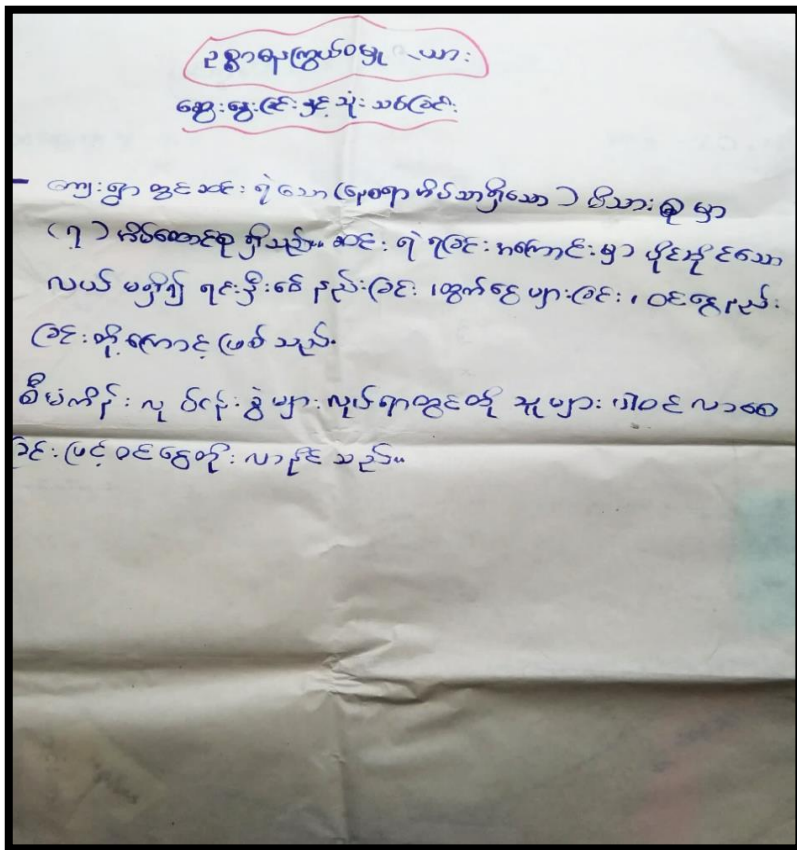 ဥစ္စာဓနကြွယ်ဝမှု ယား
ဆွေးနွေးခြင်းနှင့်သုံးသပ်ခြင်း
- ကျေးရွာတွင်ဆင်းရဲသော (နေစရာအိမ်သာရှိသော) မိသားစုမှာ
(၇) အိမ်ထောင်စုရှိသည်။ ဆင်းရဲရခြင်းအကြောင်းမှာ ပိုင်ဆိုင်သော
လယ်မရှိ၍ ရင်းနှီးငွေနည်းခြင်း၊ ထွက်ငွေများခြင်း၊ ဝင်ငွေနည်း
ခြင်းတို့ကြောင့်ဖြစ်သည်။
စီမံကိန်းလုပ်ငန်းခွဲများလုပ်ရာတွင်တို့သူများပါဝင်လာစေ
ခြင်းဖြင့်ဝင်ငွေတိုးလာနိုင်သည်။